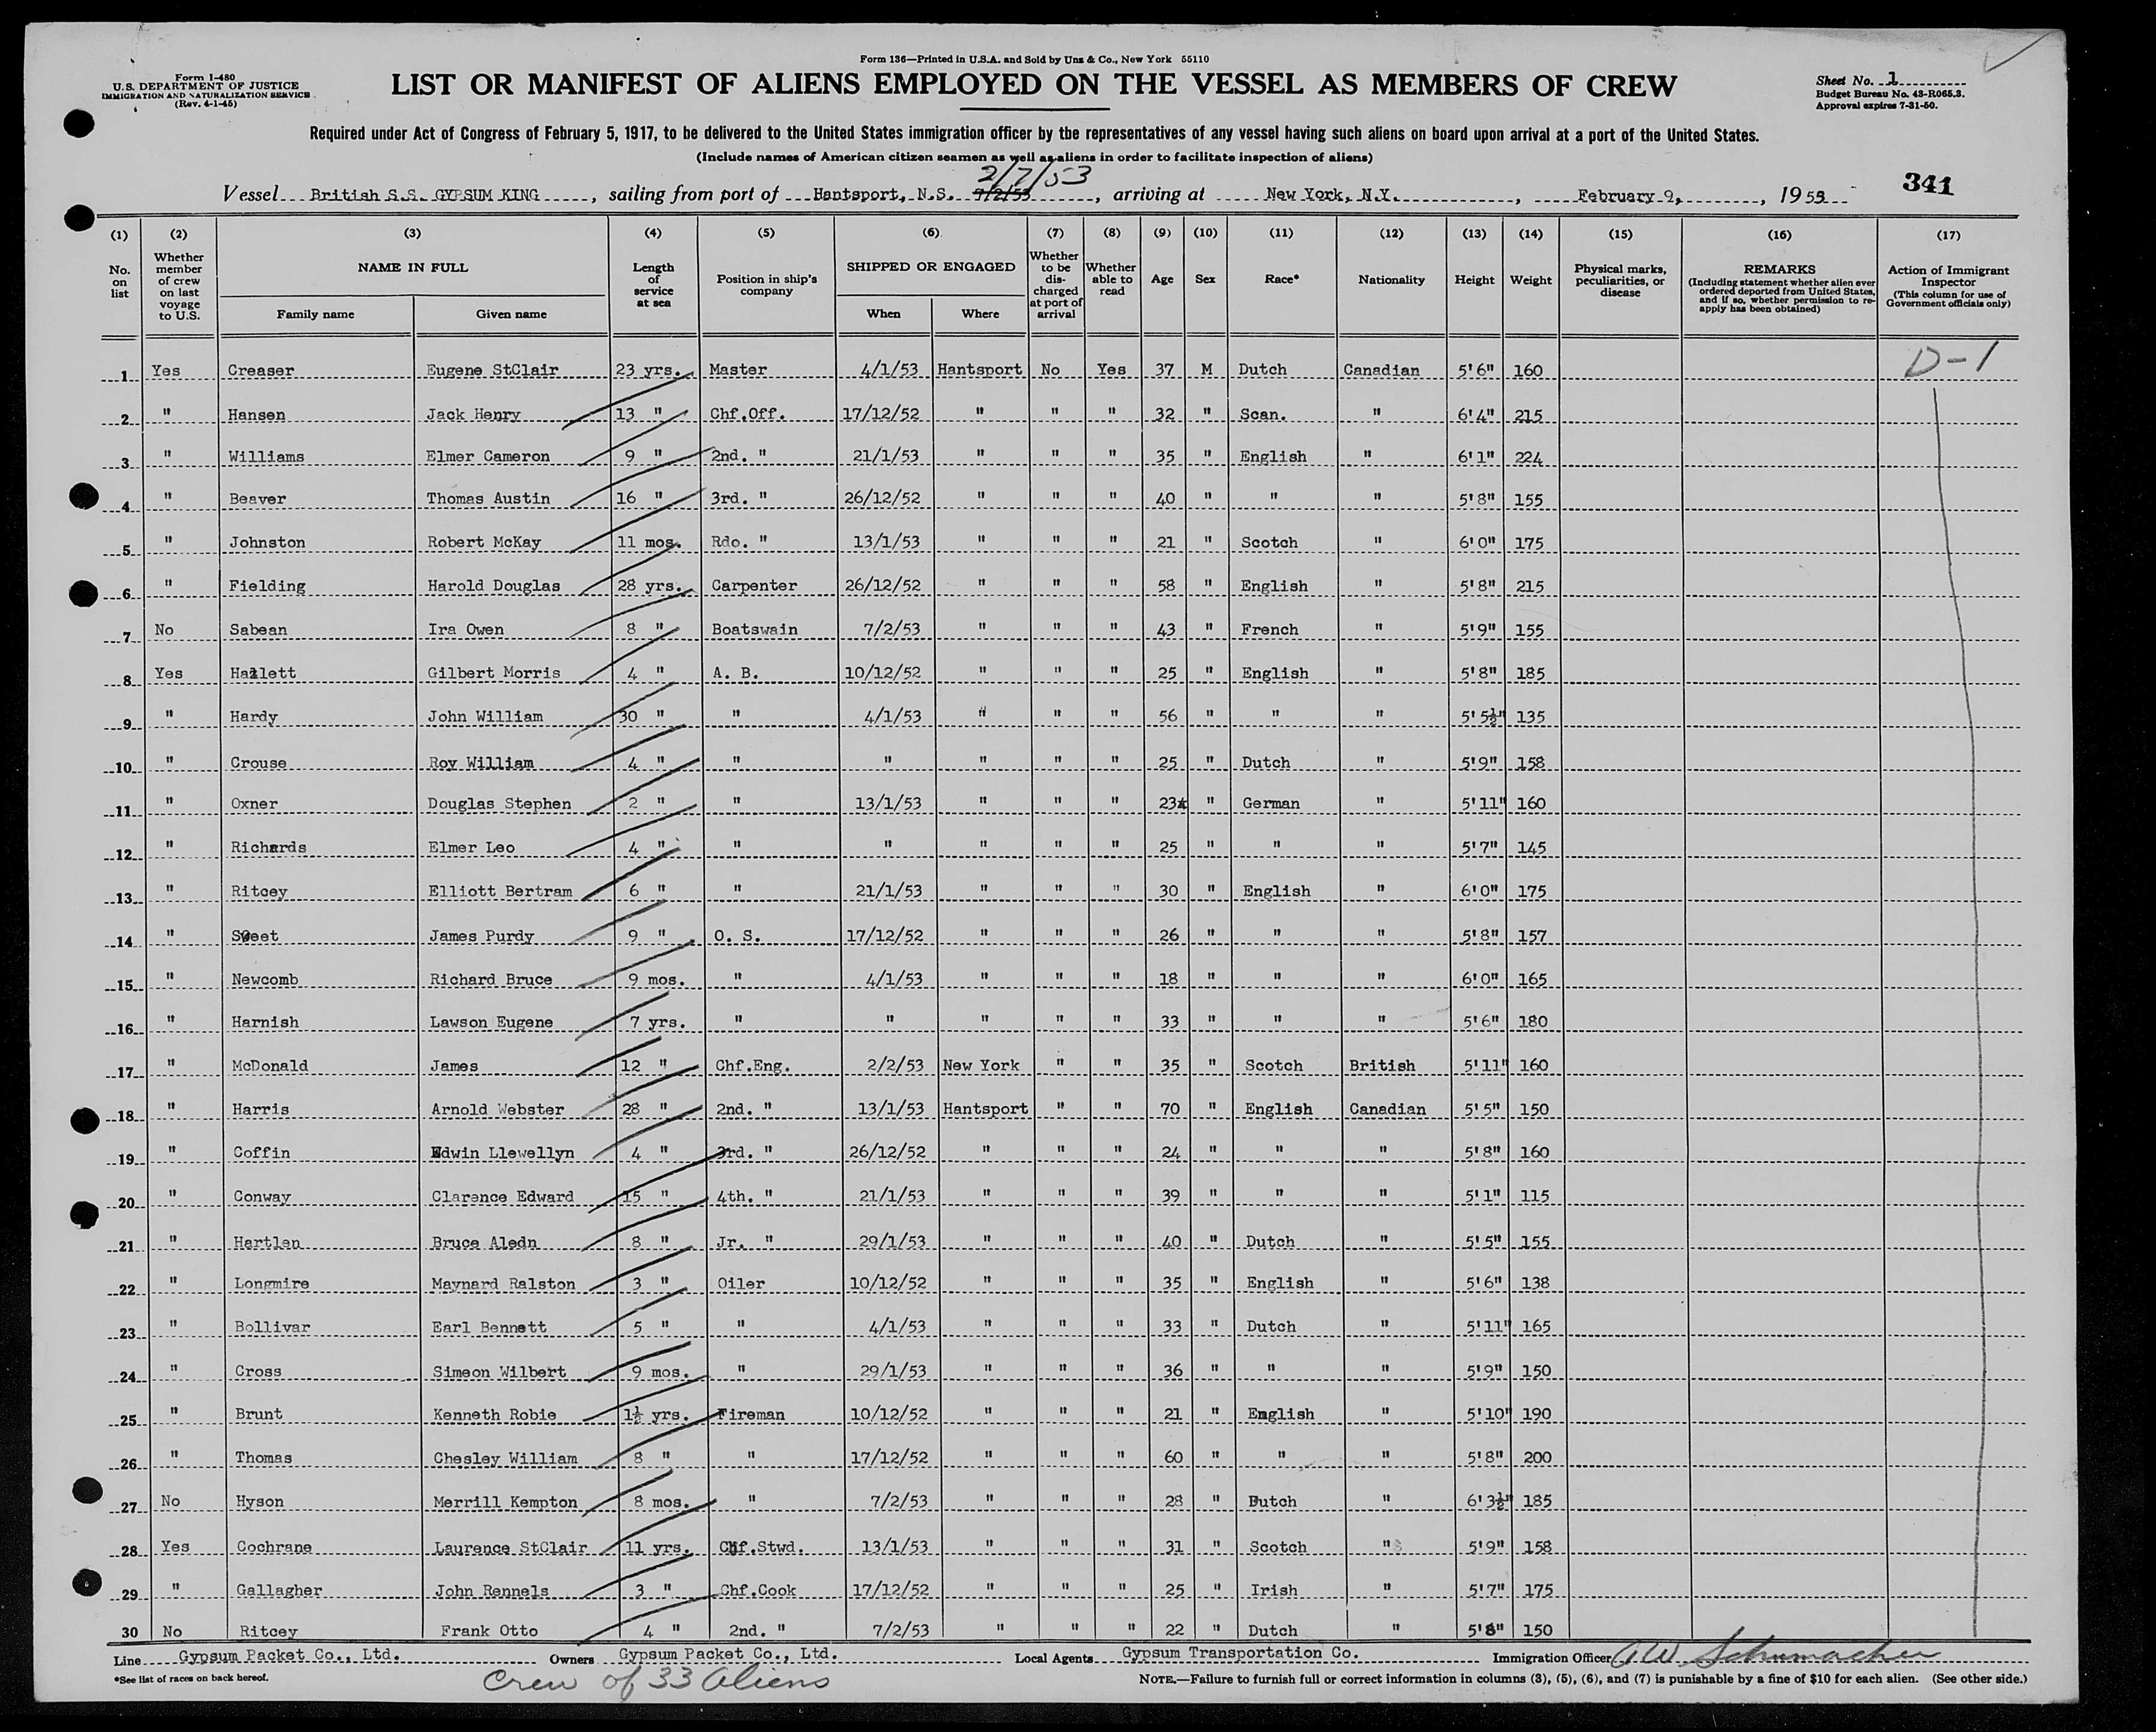 Form I-480
U.S. DEPARTMENT OF JUSTICE
IMMIGRATION AND NATURALIZATION SERVICE
(Rev. 4-1-45)
Form 136—Printed in U.S.A. and Sold by Unz & Co., New York 55110
LIST OR MANIFEST OF ALIENS EMPLOYED ON THE VESSEL AS MEMBERS OF CREW
Sheet No. 1
Budget Bureau No. 43-R065.3.
Approval expires 7-31-50.
Required under Act of Congress of February 5, 1917, to be delivered to the United States immigration officer by the representatives of any vessel having such aliens on board upon arrival at a port of the United States.
(Include names of American citizen seamen as well as aliens in order to facilitate inspection of aliens)
2/7/53
341
Vessel British S.S. GYPSUM KING, sailing from port of Hantsport, N.S. 7/2/53, arriving at New York, N.Y., February 9, 1953
(1) (2) (3) (4) (5) (6) (7) (8) (9) (10) (11) (12) (13) (14) (15) (16) (17)
No. on list
Whether member of crew on last voyage to U.S.
NAME IN FULL
Family name Given name
Length of service at sea
Position in ship's company
SHIPPED OR ENGAGED
When Where
Whether to be discharged at port of arrival
Whether able to read
Age Sex Race* Nationality Height Weight
Physical marks, peculiarities, or disease
REMARKS
(Including statement whether alien ever ordered deported from United States, and if so, whether permission to re-apply has been obtained)
Action of Immigrant Inspector
(This column for use of Government officials only)
1 Yes Creaser Eugene StClair 23 yrs. Master 4/1/53 Hantsport No Yes 37 M Dutch Canadian 5'6" 160 D-1
2 " Hansen Jack Henry 13 " Chf.Off. 17/12/52 " " " 32 " Scan. " 6'4" 215
3 " Williams Elmer Cameron 9 " 2nd. " 21/1/53 " " " 35 " English " 6'1" 224
4 " Beaver Thomas Austin 16 " 3rd. " 26/12/52 " " " 40 " " " 5'8" 155
5 " Johnston Robert McKay 11 mos. Rdo. " 13/1/53 " " " 21 " Scotch " 6'0" 175
6 " Fielding Harold Douglas 28 yrs. Carpenter 26/12/52 " " " 58 " English " 5'8" 215
7 No Sabean Ira Owen 8 " Boatswain 7/2/53 " " " 43 " French " 5'9" 155
8 Yes Hallett Gilbert Morris 4 " A. B. 10/12/52 " " " 25 " English " 5'8" 185
9 " Hardy John William 30 " " 4/1/53 " " " 56 " " " 5'5½" 135
10 " Crouse Roy William 4 " " " " " " 25 " Dutch " 5'9" 158
11 " Oxner Douglas Stephen 2 " " 13/1/53 " " " 23 " German " 5'11" 160
12 " Richards Elmer Leo 4 " " " " " " 25 " " " 5'7" 145
13 " Ritcey Elliott Bertram 6 " " 21/1/53 " " " 30 " English " 6'0" 175
14 " Sweet James Purdy 9 " O. S. 17/12/52 " " " 26 " " " 5'8" 157
15 " Newcomb Richard Bruce 9 mos. " 4/1/53 " " " 18 " " " 6'0" 165
16 " Harnish Lawson Eugene 7 yrs. " " " " " 33 " " " 5'6" 180
17 " McDonald James 12 " Chf.Eng. 2/2/53 New York " " 35 " Scotch British 5'11" 160
18 " Harris Arnold Webster 28 " 2nd. " 13/1/53 Hantsport " " 70 " English Canadian 5'5" 150
19 " Coffin Edwin Llewellyn 4 " 3rd. " 26/12/52 " " " 24 " " " 5'8" 160
20 " Conway Clarence Edward 15 " 4th. " 21/1/53 " " " 39 " " " 5'1" 115
21 " Hartlen Bruce Aledn 8 " Jr. " 29/1/53 " " " 40 " Dutch " 5'5" 155
22 " Longmire Maynard Ralston 3 " Oiler 10/12/52 " " " 35 " English " 5'6" 138
23 " Bollivar Earl Bennett 5 " " 4/1/53 " " " 33 " Dutch " 5'11" 165
24 " Cross Simeon Wilbert 9 mos. " 29/1/53 " " " 36 " " " 5'9" 150
25 " Brunt Kenneth Robie 1½ yrs. Fireman 10/12/52 " " " 21 " English " 5'10" 190
26 " Thomas Chesley William 8 " " 17/12/52 " " " 60 " " " 5'8" 200
27 No Hyson Merrill Kempton 8 mos. " 7/2/53 " " " 28 " Dutch " 6'3½" 185
28 Yes Cochrane Laurence StClair 11 yrs. Chf.Stwd. 13/1/53 " " " 31 " Scotch " 5'9" 158
29 " Gallagher John Rennels 3 " Chf.Cook 17/12/52 " " " 25 " Irish " 5'7" 175
30 No Ritcey Frank Otto 4 " 2nd. " 7/2/53 " " " 22 " Dutch " 5'8" 150
Line Gypsum Packet Co., Ltd. Owners Gypsum Packet Co., Ltd. Local Agents Gypsum Transportation Co. Immigration Officer A W Schumacher
*See list of races on back hereof.
Crew of 33 Aliens
NOTE.—Failure to furnish full or correct information in columns (3), (5), (6), and (7) is punishable by a fine of $10 for each alien. (See other side.)